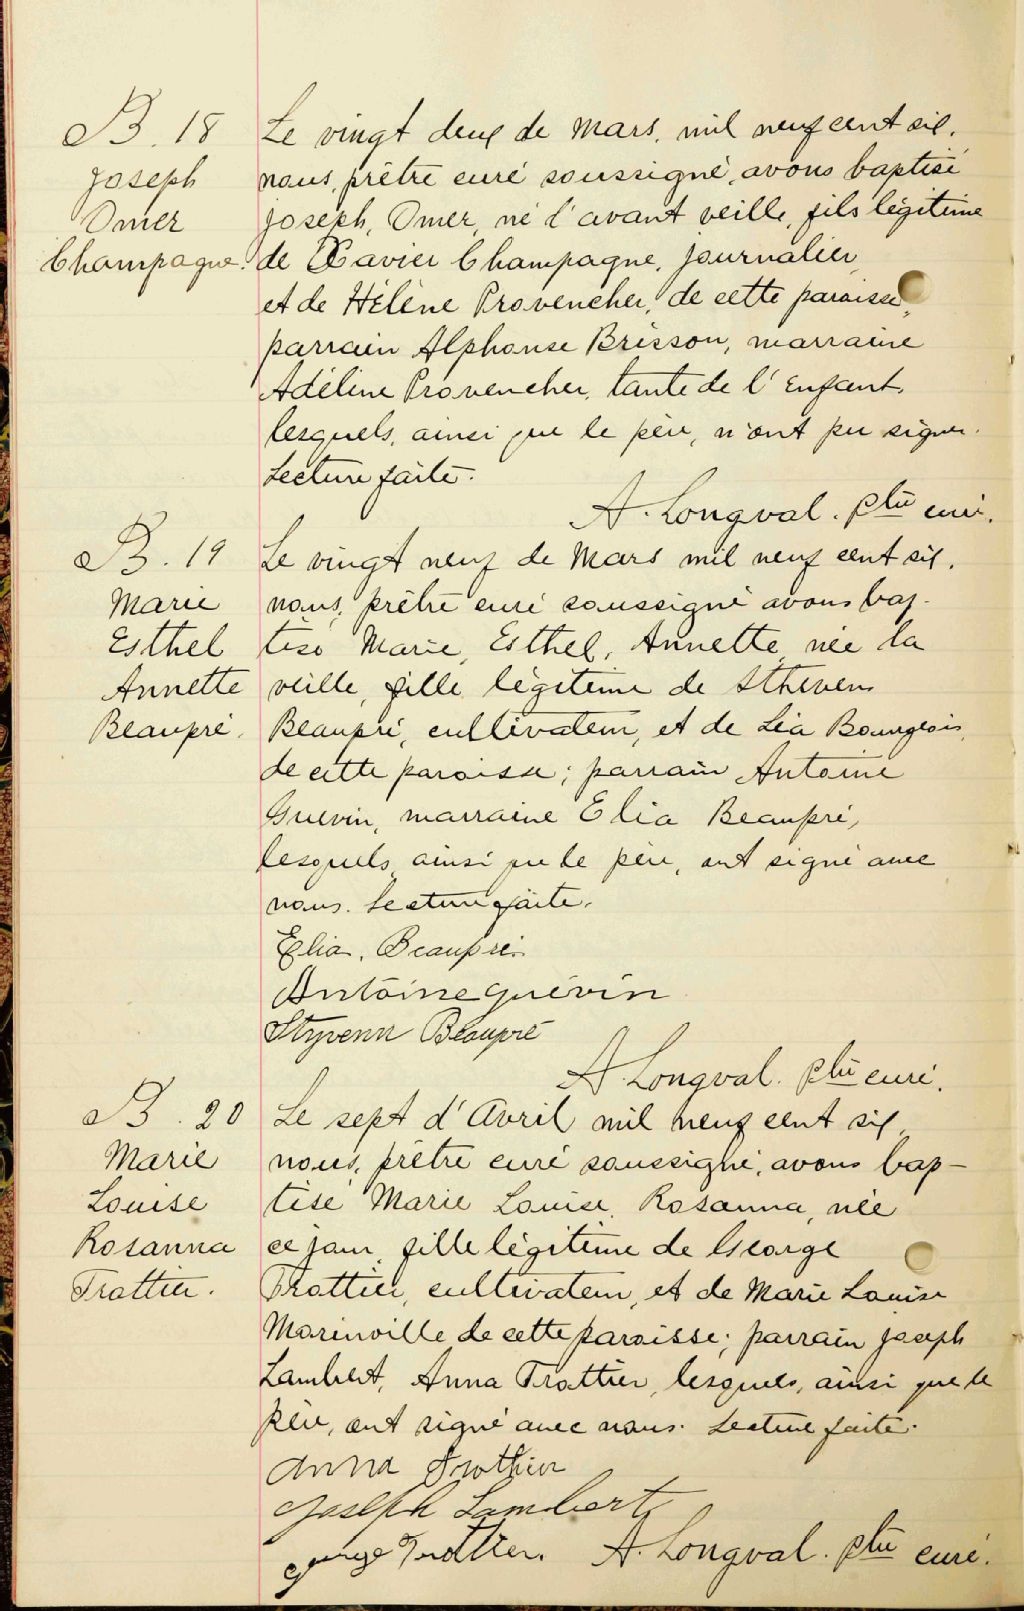 B. 18
Joseph
Omer
Champagne.
Le vingt deux de Mars, mil neuf cent six,
nous, prêtre curé soussigné, avons baptisé
Joseph, Omer, né l'avant veille, fils légitime
de Xavier Champagne, journalier,
et de Hélène Provencher, de cette paroisse,
parrain Alphonse Brisson, marraine
Adéline Provencher, tante de l'enfant,
lesquels, ainsi que le père, n'ont pu signer.
Lecture faite.
A. Longval. ptre curé.
B. 19
Marie
Esthel
Annette
Beaupré.
Le vingt neuf de Mars mil neuf cent six,
nous, prêtre curé soussigné avons bap-
tisé Marie, Esthel, Annette, née la
veille, fille légitime de Sthevens
Beaupré, cultivateur, et de Léa Bourgeois,
de cette paroisse; parrain Antoine
Guevin, marraine Elia Beaupré,
lesquels, ainsi que le père, ont signé avec
nous. Lecture faite.
Elia. Beaupré
Antoine Guévin
Styvenn Beaupré
A. Longval. ptre curé.
B. 20
Marie
Louise
Rosanna
Trottier.
Le sept d'Avril mil neuf cent six,
nous, prêtre curé soussigné, avons bap-
tisé Marie Louise, Rosanna, née
ce jour, fille légitime de George
Trottier, cultivateur, et de Marie Louise
Marinville de cette paroisse; parrain Joseph
Lambert, Anna Trottier, lesquels, ainsi que le
père, ont signé avec nous. Lecture faite.
Anna Trothier
Joseph Lambert
George Trottier. A. Longval. ptre curé.